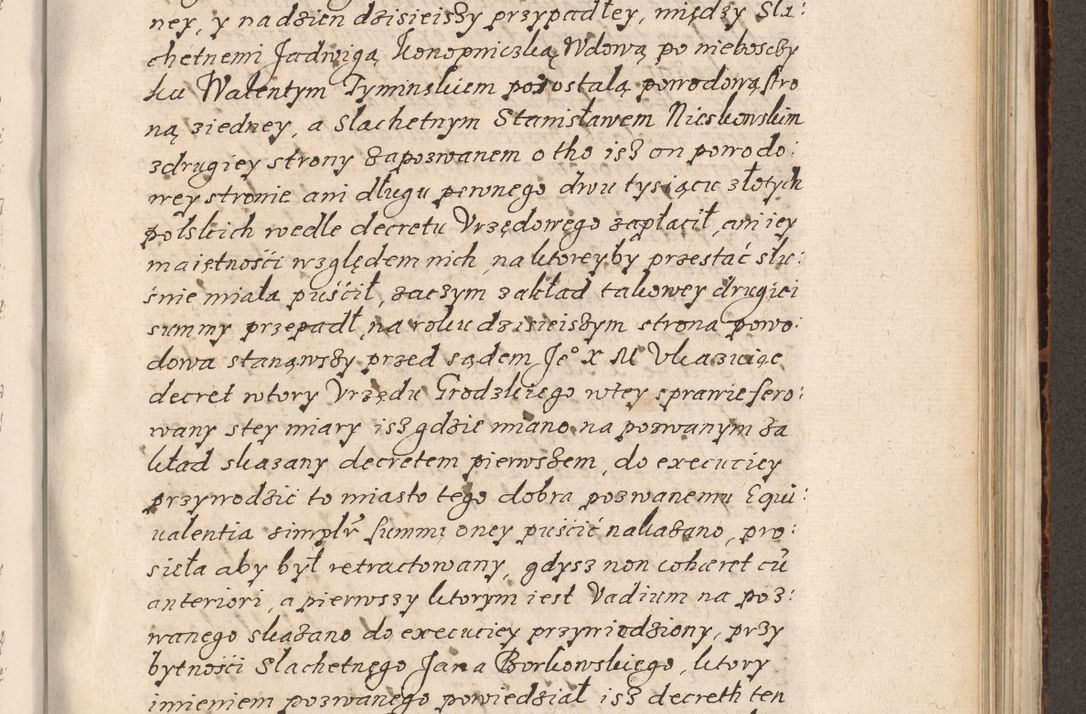 ney, y nadzien dzisieiszy przypadłey, między Sla:
chetnemi Jadwigą Konopniczką Wdową po nieboszczy
ku Walentym Tyminskiem pozostalą powodową stro
ną ziedney, a Slachetnym Stanisławem Nieskowskim
zdrugiey strony zapozwanem o tho isz on powodo:
wey stronie ani długu pewnego dwu tysiącu złotych
polskich wedle decretu Vrzędowego zapłacił, ani iey
maiętnośći względem nich, na ktoreyby przestać słu:
śnie miała puśćił, zaczym zakład takowey drugiei
summy przepadł, na roku dzisieiszym strona powo:
dowa stanąwszy przed sądem Jeº X M Vkazuiąc
decret wtory Vrzędu Grodzkiego wtey sprawie fero:
wany stey miary isz gdzie miano na pozwanym za
kład skazany decretem pierwszem, do execuciey
przywodzić to miasto tego dobra pozwanemu Equi:
ualentia simplr summi oney puśćić nakazano, pro:
sieła aby był retractowany, gdysz non cohæret cū
anteriori, a pierwszy ktorym iest Vadium na poz:
wanego skazano do execuciey przywiodziony, przy
bytnośći Slachetnego Jana Borkowskiego, ktory
imieniem pozwanego powiedział isz decreth ten